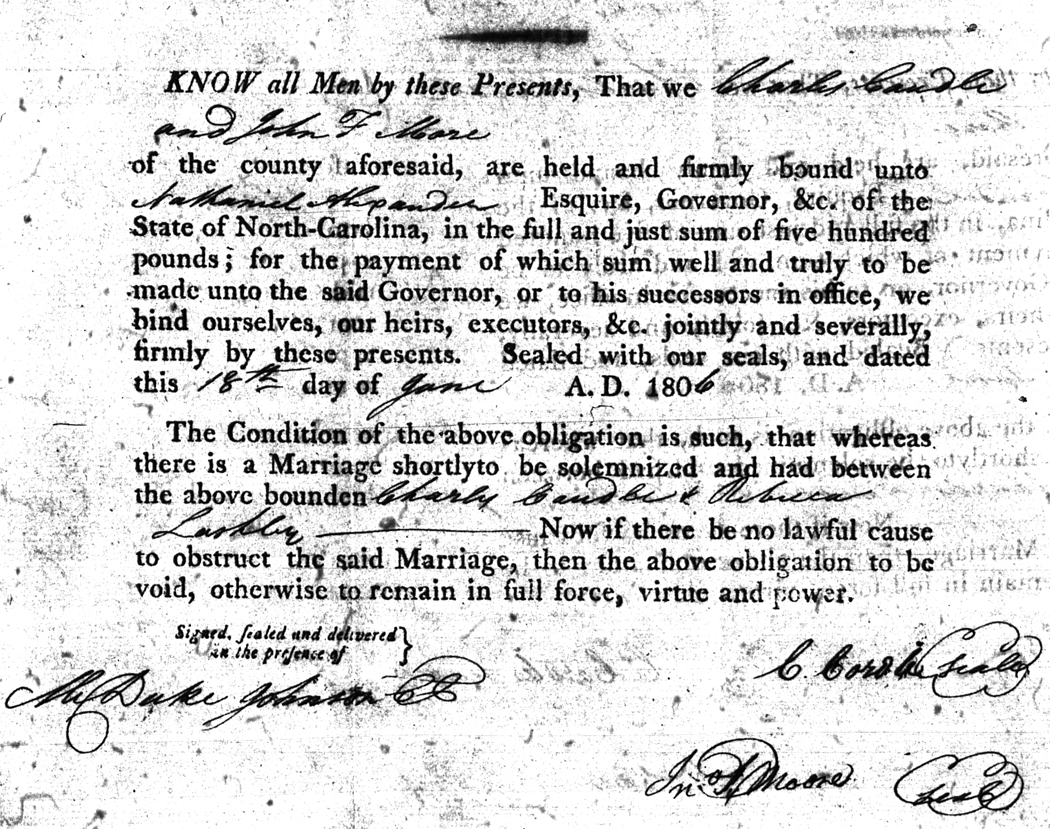 KNOW all Men by these Presents, That we Charles Caudle
and John F Moore
of the county aforesaid, are held and firmly bound unto
Nathaniel Alexander Esquire, Governor, &c. of the
State of North-Carolina, in the full and just sum of five hundred
pounds; for the payment of which sum well and truly to be
made unto the said Governor, or to his successors in office, we
bind ourselves, our heirs, executors, &c. jointly and severally,
firmly by these presents. Sealed with our seals, and dated
this 18th day of June A. D. 1806
The Condition of the above obligation is such, that whereas
there is a Marriage shortlyto be solemnized and had between
the above bounden Charles Caudle & Rebecca
Now if there be no lawful cause
to obstruct the said Marriage, then the above obligation to be
void, otherwise to remain in full force, virtue and power.
Signed, sealed and delivered }
in the presence of
M Duke Johnson CC
C (seale)
Jno F Moore (seale)